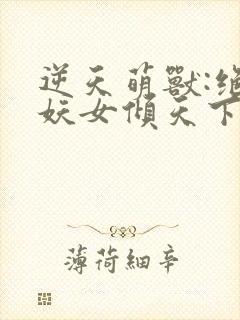 逆天萌獸:絕
妖女傾天下
薄荷細辛